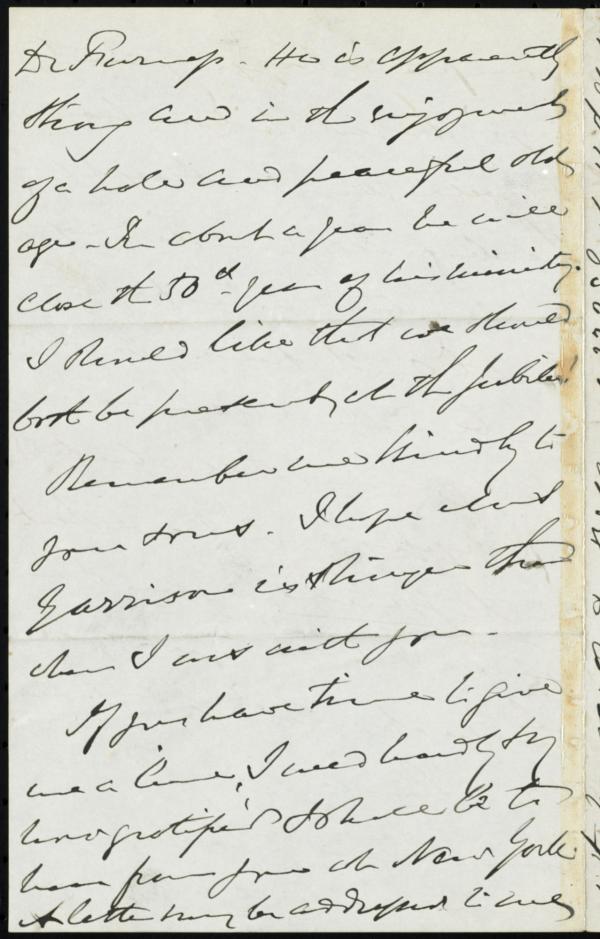 Dr Furness. He is apparently
strong and in the enjoyment
of a hale and peaceful old
age - In about a year he will
close the 50th year of his ministry.
I should like that we should
both be present at the Jubilee!
Remember me kindly to
your sons. I hope Mrs
Garrison is stronger than
when I was with you -
If you have time to give
me a line, I need hardly say
how gratified I shall be to
hear from you at New York
A letter may be addressed to me